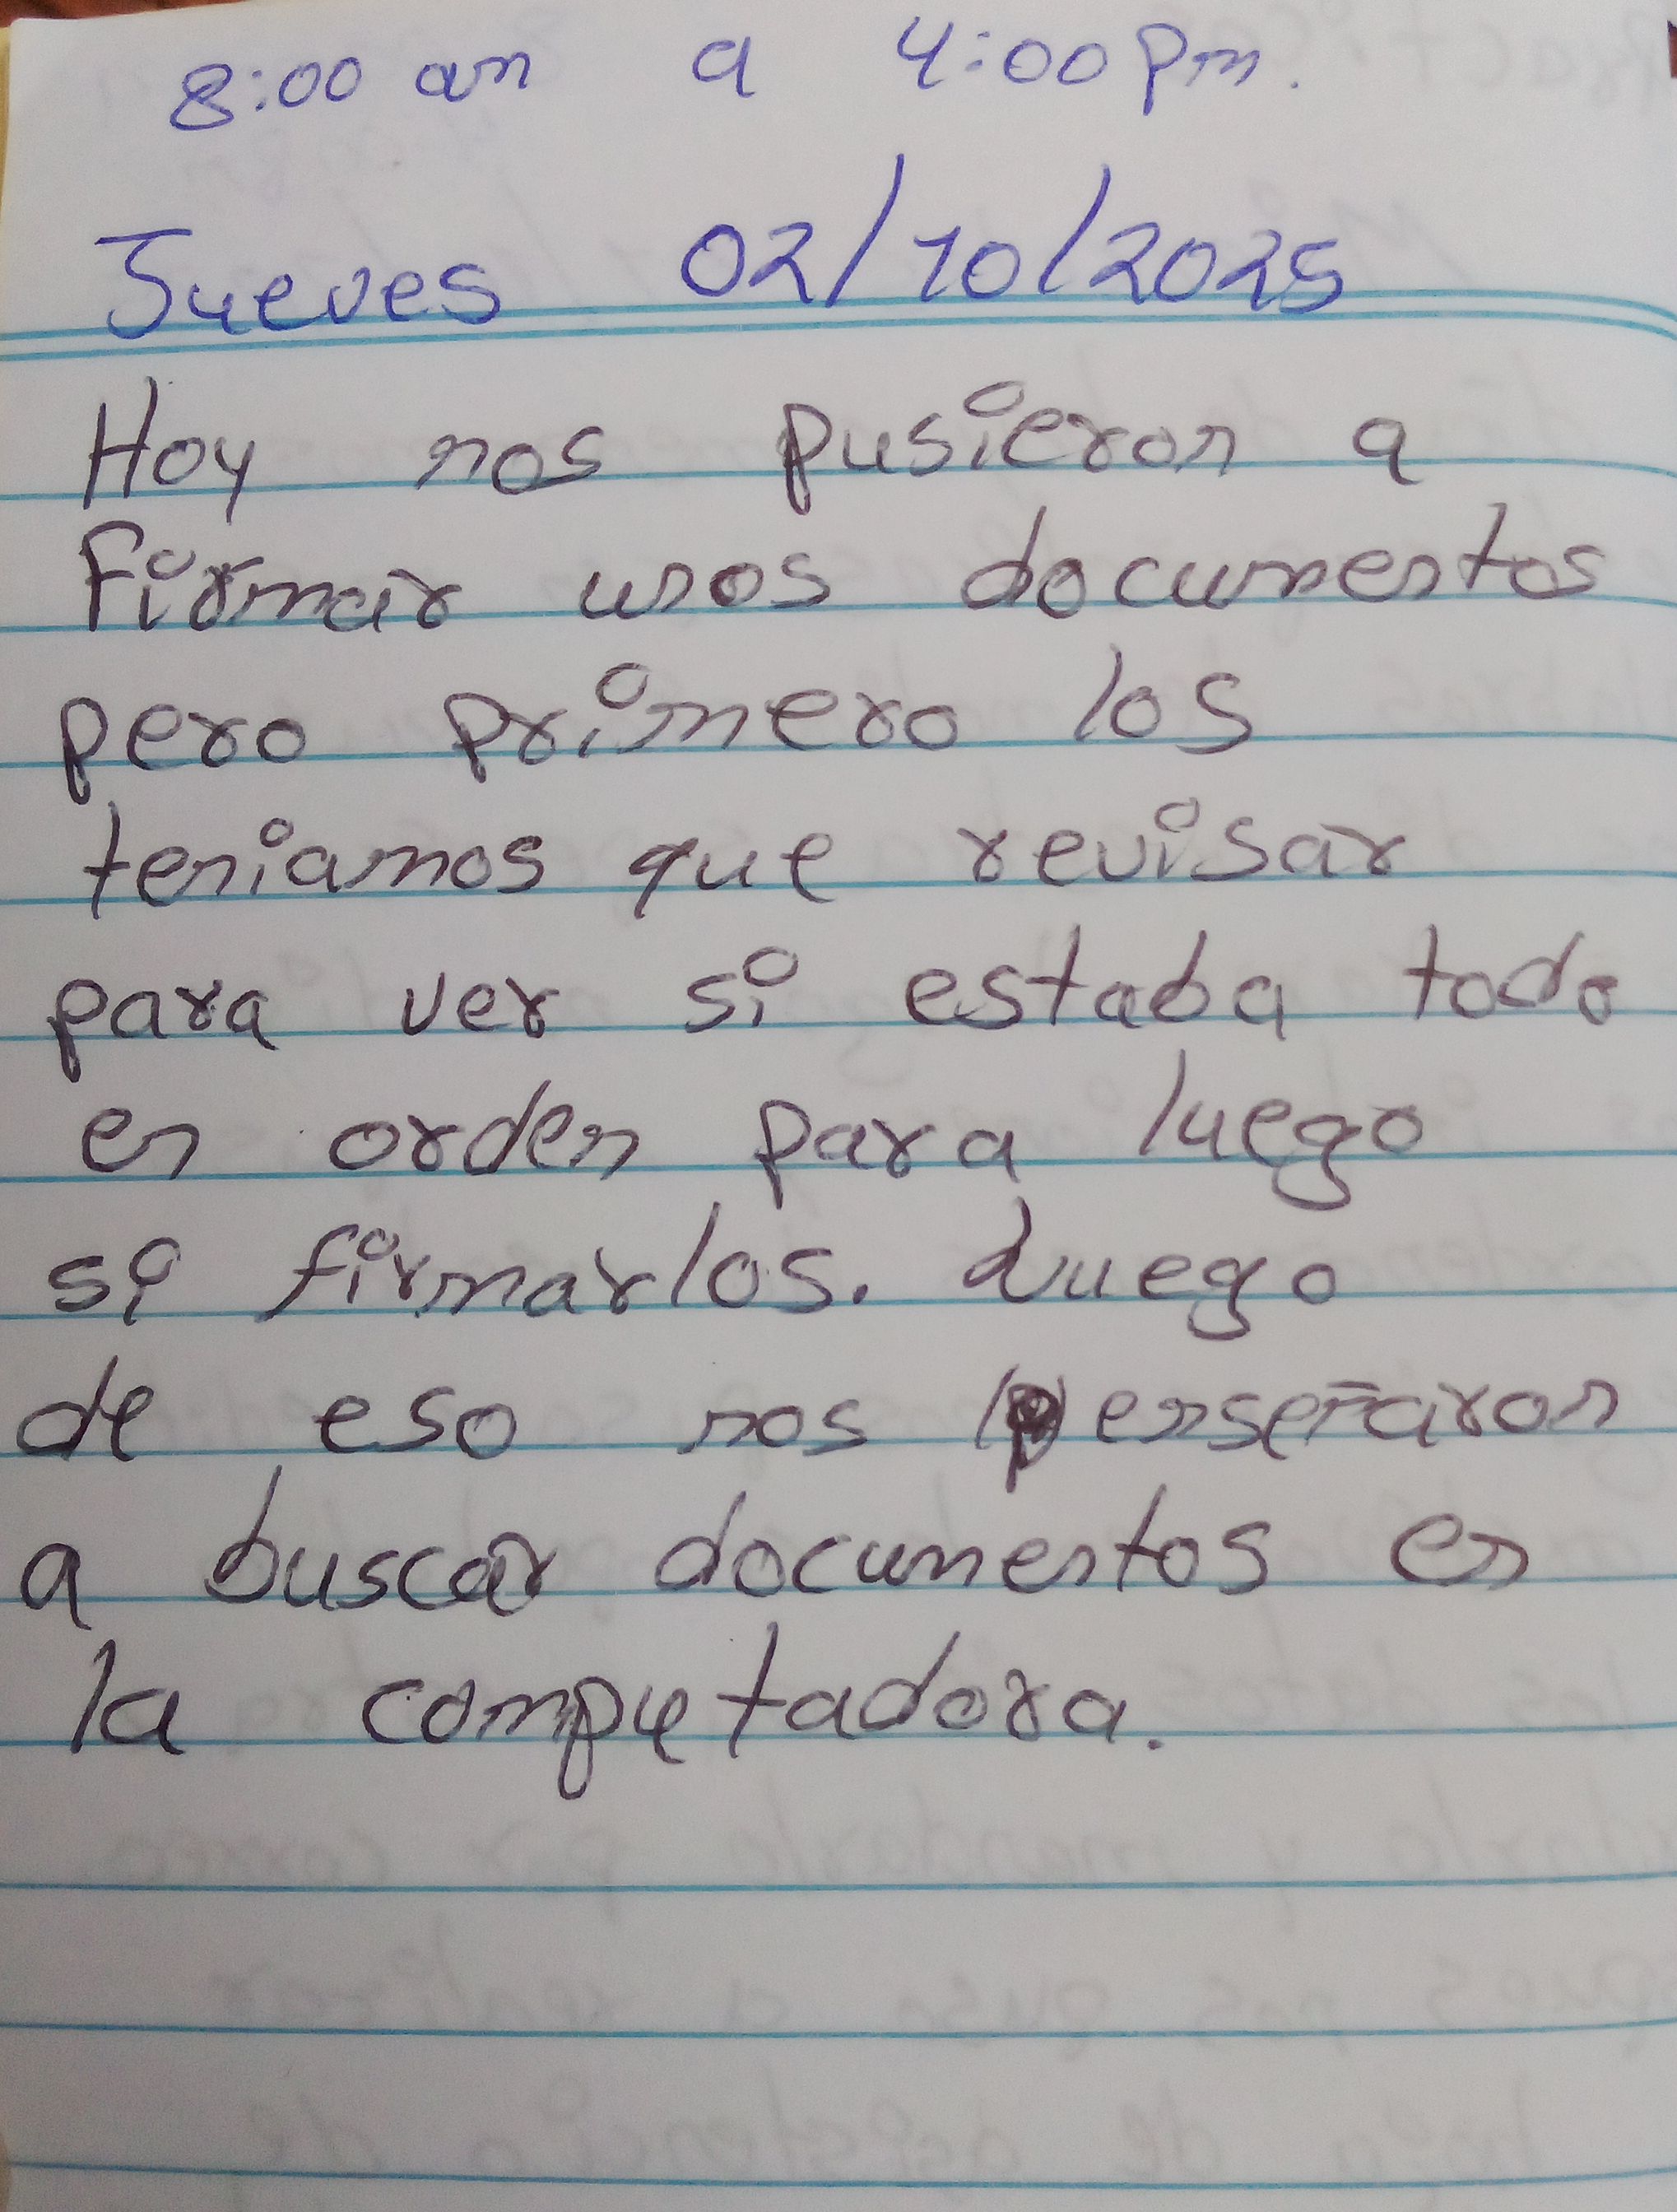 8:00 am a 4:00 pm.
Jueves 02/10/2025
Hoy nos pusieron a
Firmar unos documentos
pero primero los
teniamos que revisar
para ver si estaba todo
en orden para luego
si firmarlos. Luego
de eso nos enseñaron
a buscar documentos en
la computadora.